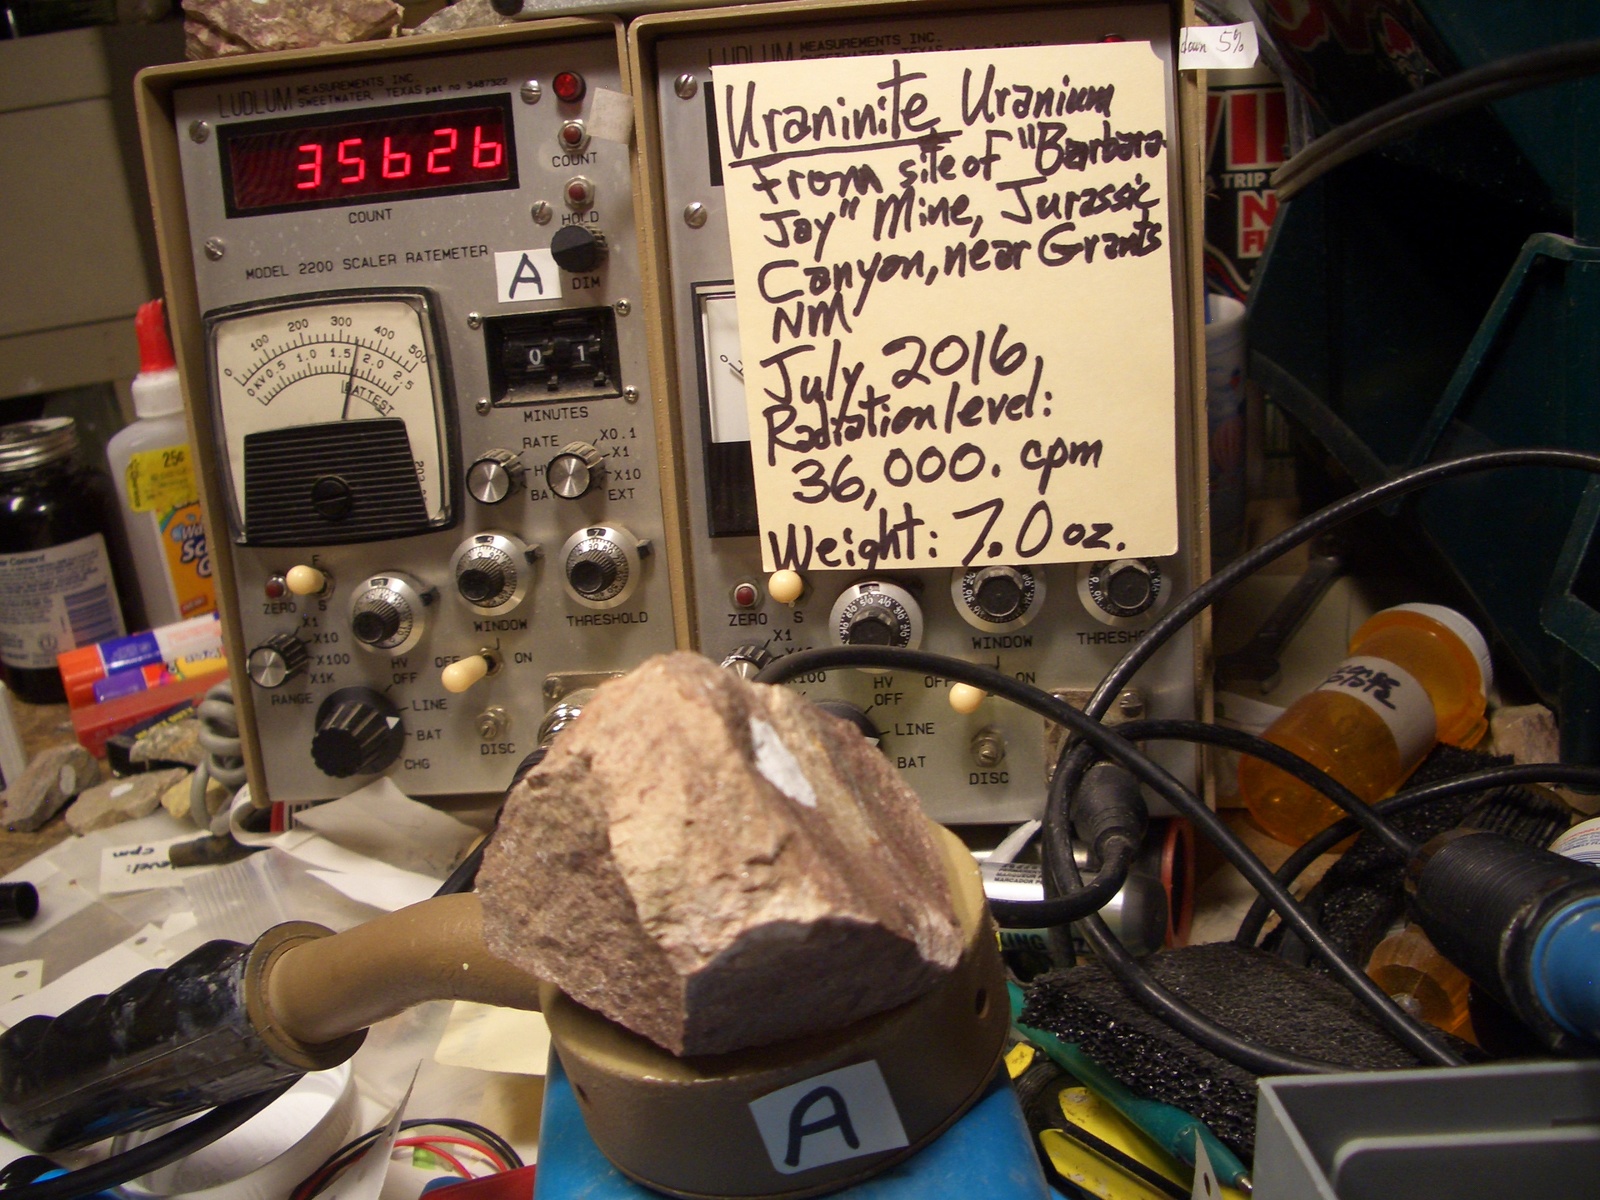 LUDLUM MEASUREMENTS INC.
SWEETWATER, TEXAS pat no 3487322
35626
COUNT
COUNT
HOLD
DIM
MODEL 2200 SCALER RATEMETER
A
0 100 200 300 400 500
0 KV 0.5 1.0 1.5 2.0 2.5
BAT TEST
01
MINUTES
RATE
HV
BAT
X0.1
X1
X10
EXT
F
S
ZERO
WINDOW
THRESHOLD
X1
X10
X100
X1K
RANGE
HV
OFF
ON
OFF
LINE
BAT
CHG
DISC
LUDLUM MEASUREMENTS INC.
down 5%
Uraninite Uranium
From site of "Barbara
Jay" Mine, Jurassic
Canyon, near Grants
NM
July, 2016,
Radiation level:
36,000. cpm
Weight: 7.0 oz.
ZERO
S
WINDOW
X1
X100
HV
OFF
ON
OFF
LINE
BAT
DISC
TRIP
25¢
Cement
level:
cpm
A